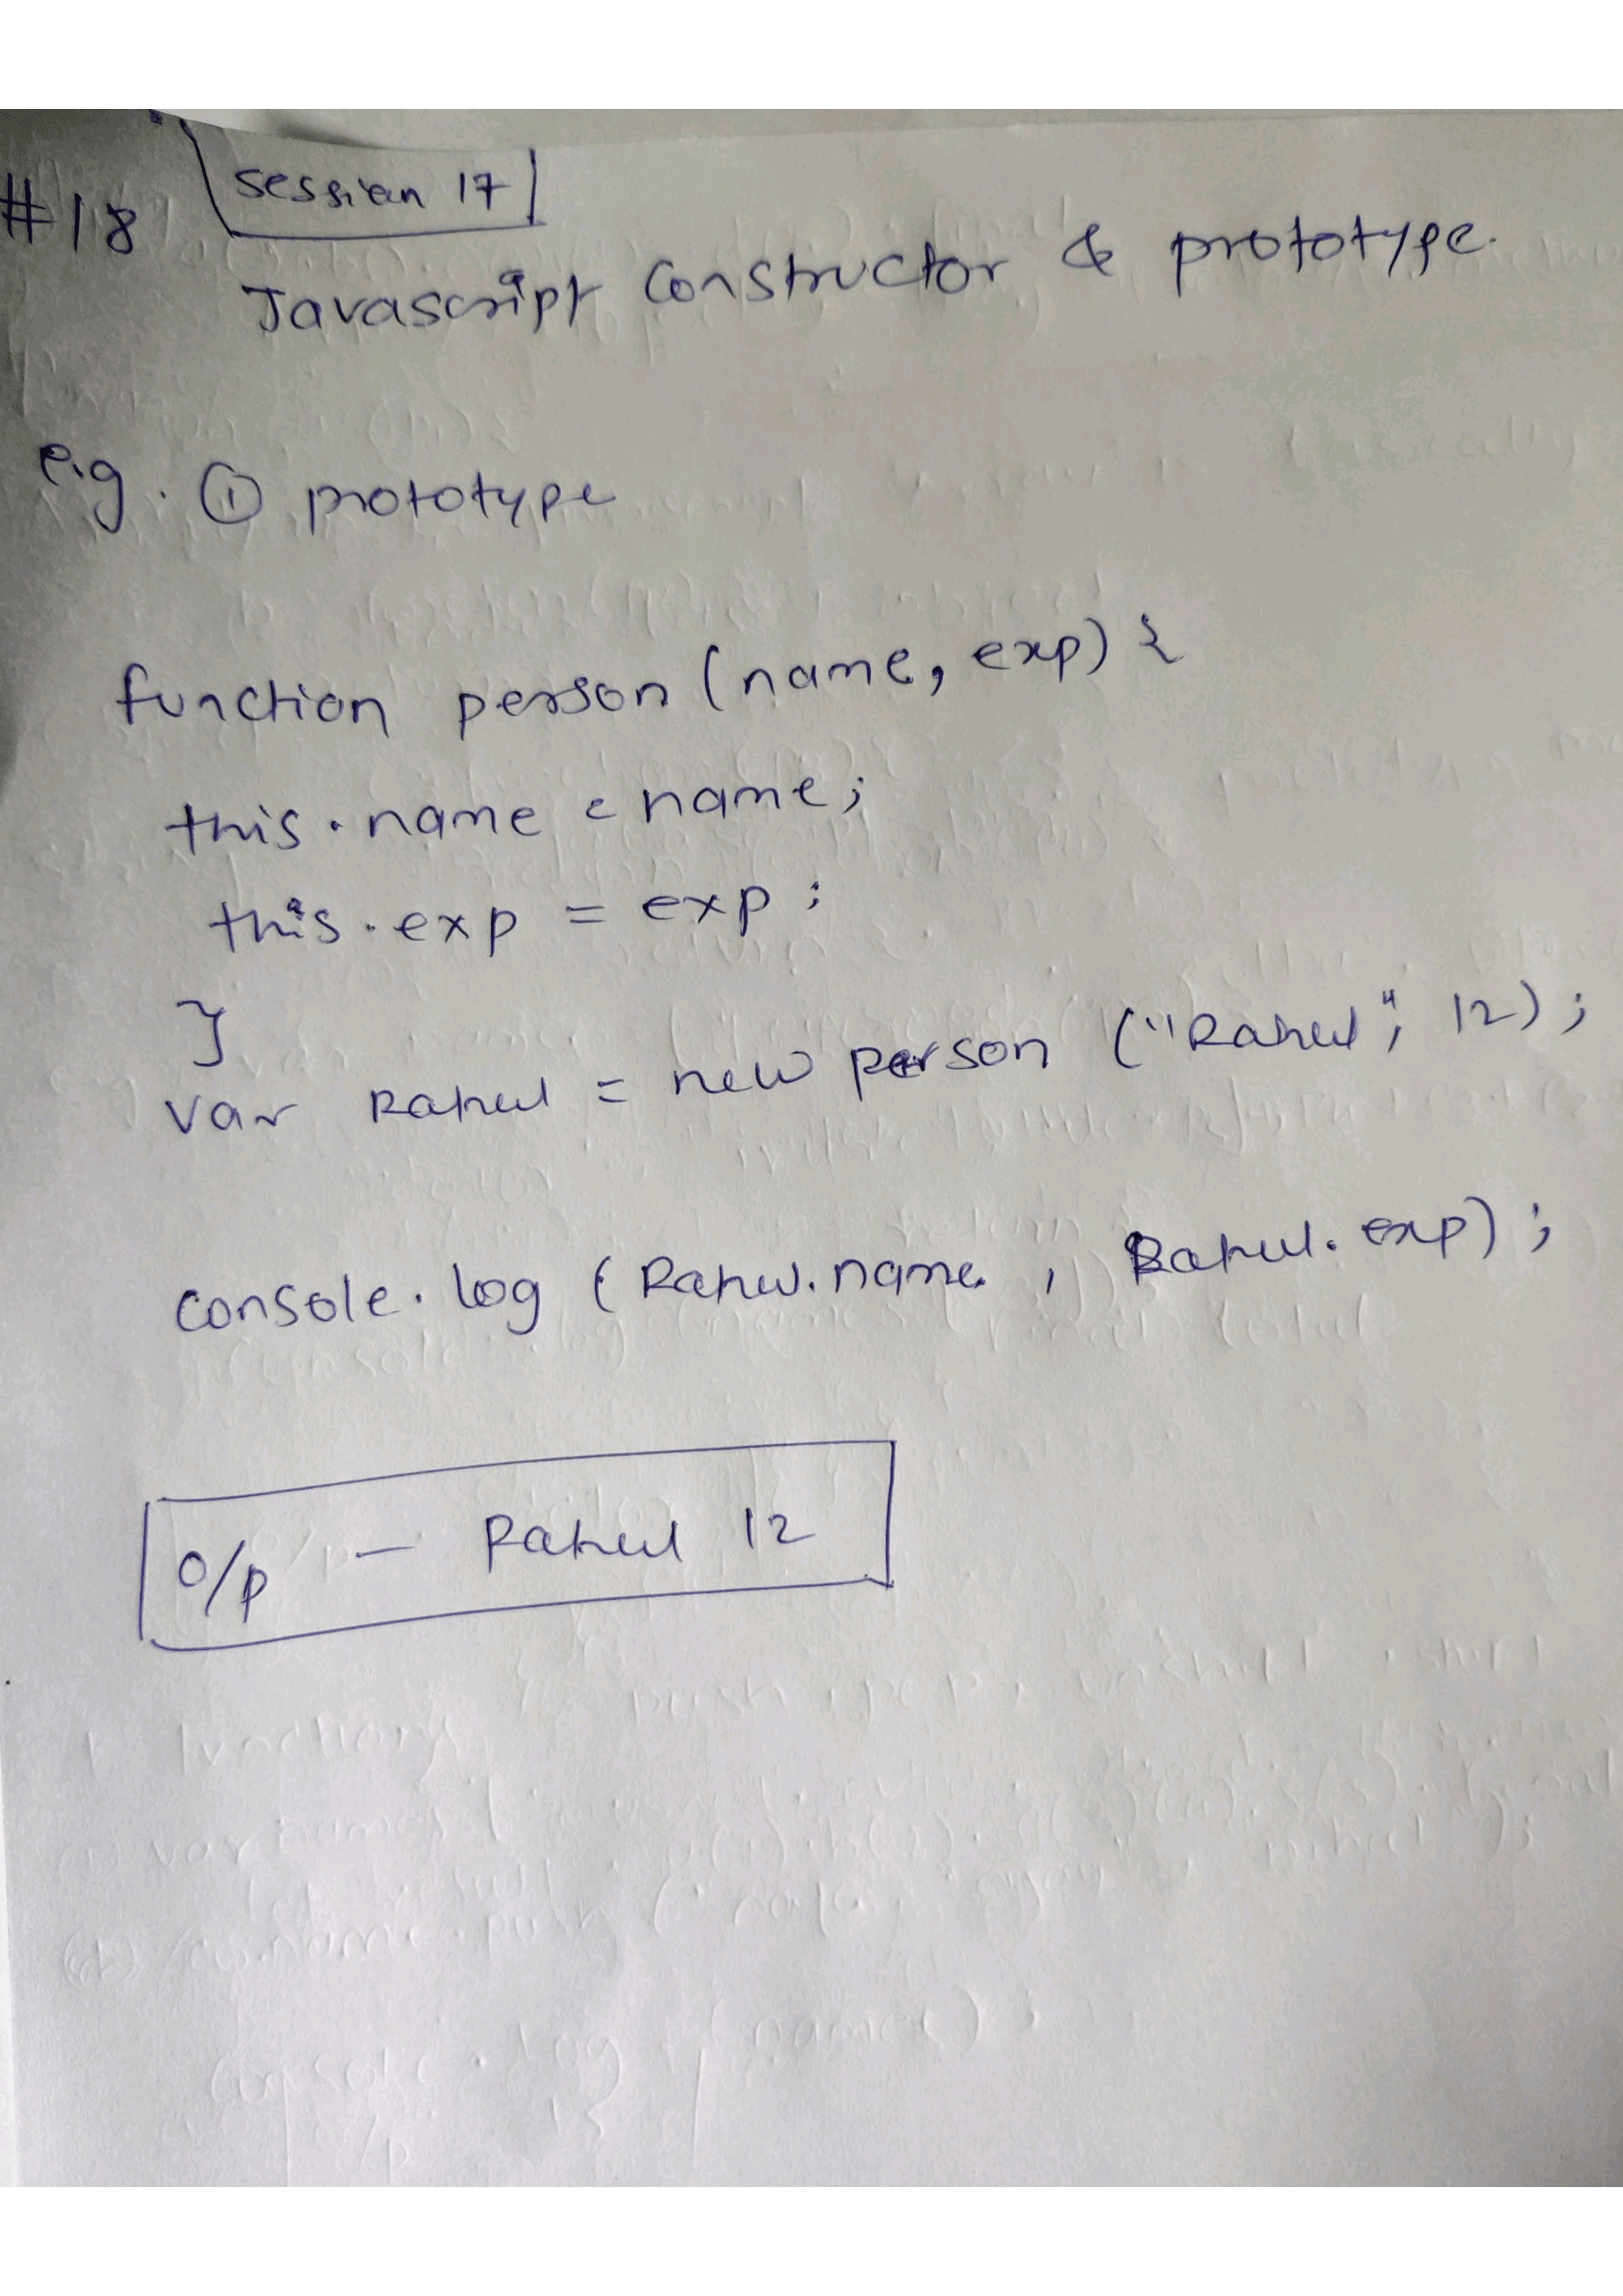 #18
session 17
Javascript Constructor & prototype.
e.g. ① prototype
function person (name, exp) {
this.name = name;
this.exp = exp;
}
var Rahul = new person ("Rahul", 12);
console.log (Rahul.name, Rahul.exp);
o/p – Rahul 12